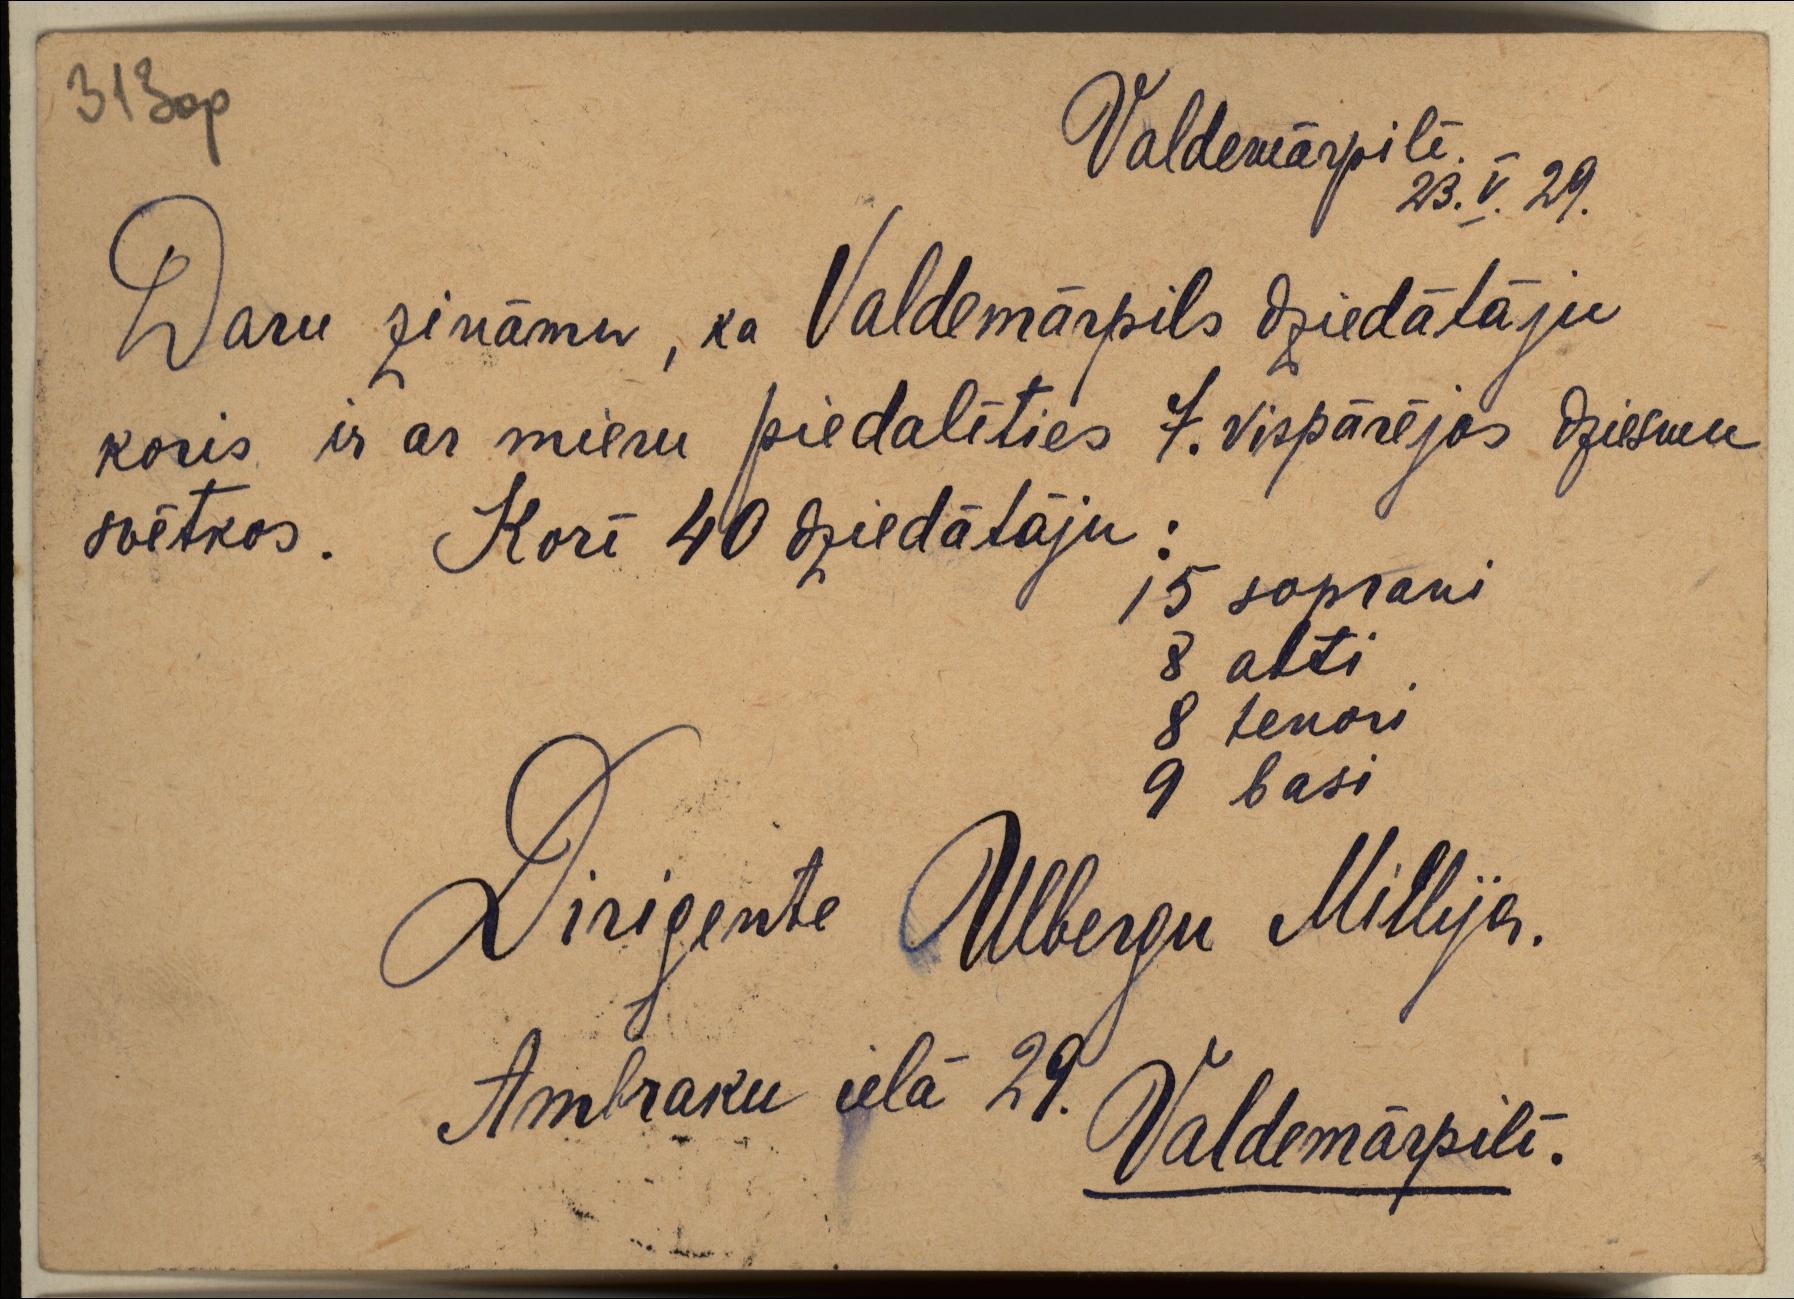 313op
Valdemārpilī.
23. V. 29.
Daru zināmu, ka Valdemārpils dziedātāju
koris ir ar mieru piedalīties 7. vispārējos dziesmu
svētkos. Korī 40 dziedātāju:
15 soprani
8 alti
8 tenori
9 basi
Dirigente Ulbergu Millija.
Ambraku ielā 29.
Valdemārpilī.